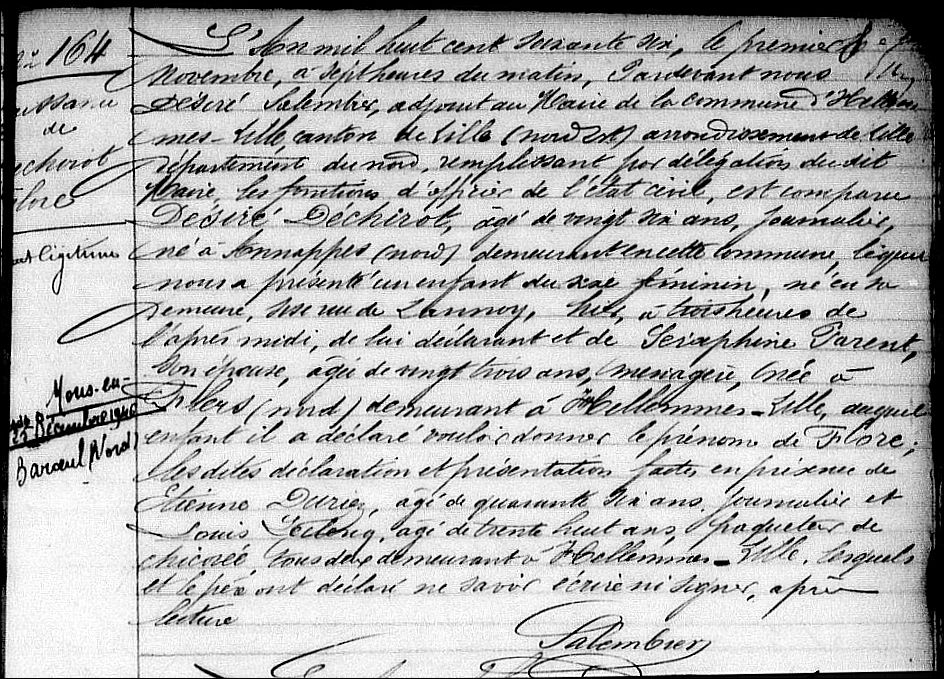 N° 164
Naissance
de
Dechirot
Flore
enfant légitime
Mons-en-
23 Décembre 1940
Barœul (Nord)
L'An mil huit cent soixante six, le premier
Novembre, à sept heures du matin, Pardevant nous
Désiré Salembier, adjoint au Maire de la commune d'Hellem-
mes-Lille, canton de Lille (nord Est) arrondissement de Lille
département du nord, remplissant par délégation du dit
Maire les fonctions d'officier de l'état civil, est comparu
Désiré Dechirot, âgé de vingt six ans, Journalier,
né à Annappes (nord) demeurant en cette commune, lequel
nous a présenté un enfant du sexe féminin, né en sa
demeure, sise rue de Lannoy, hier, à trois heures de
l'après midi, de lui déclarant et de Séraphine Parent,
son épouse, âgée de vingt trois ans, ménagère, née à
Flers (nord) demeurant à Hellemmes-Lille, auquel
enfant il a déclaré vouloir donner le prénom de Flore;
Les dites déclaration et présentation faites en présence de
Etienne Duriez, âgé de quarante six ans, Journalier et
Louis Leclercq, âgé de trente huit ans, paqueteur de
chicorée, tous deux demeurant à Hellemmes-Lille, lesquels
et le père ont déclaré ne savoir écrire ni signer, après
lecture
Salembier